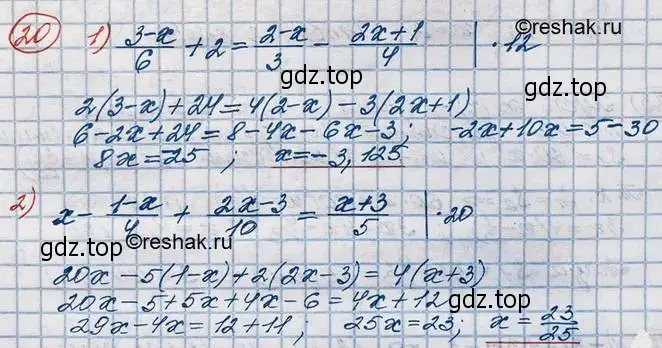 20 1) (3-x)/6 + 2 = (2-x)/3 - (2x+1)/4 | · 12
©reshak.ru
gdz.top
gdz.top
2(3-x)+24=4(2-x)-3(2x+1)
6-2x+24=8-4x-6x-3; -2x+10x=5-30
8x=-25 ; x=-3,125
2) x - (1-x)/4 + (2x-3)/10 = (x+3)/5 | · 20
gdz.top
©reshak.ru
gdz.top
20x-5(1-x)+2(2x-3)=4(x+3)
20x-5+5x+4x-6=4x+12
gdz.top
29x-4x=12+11; 25x=23; x=23/25
©reshak.ru